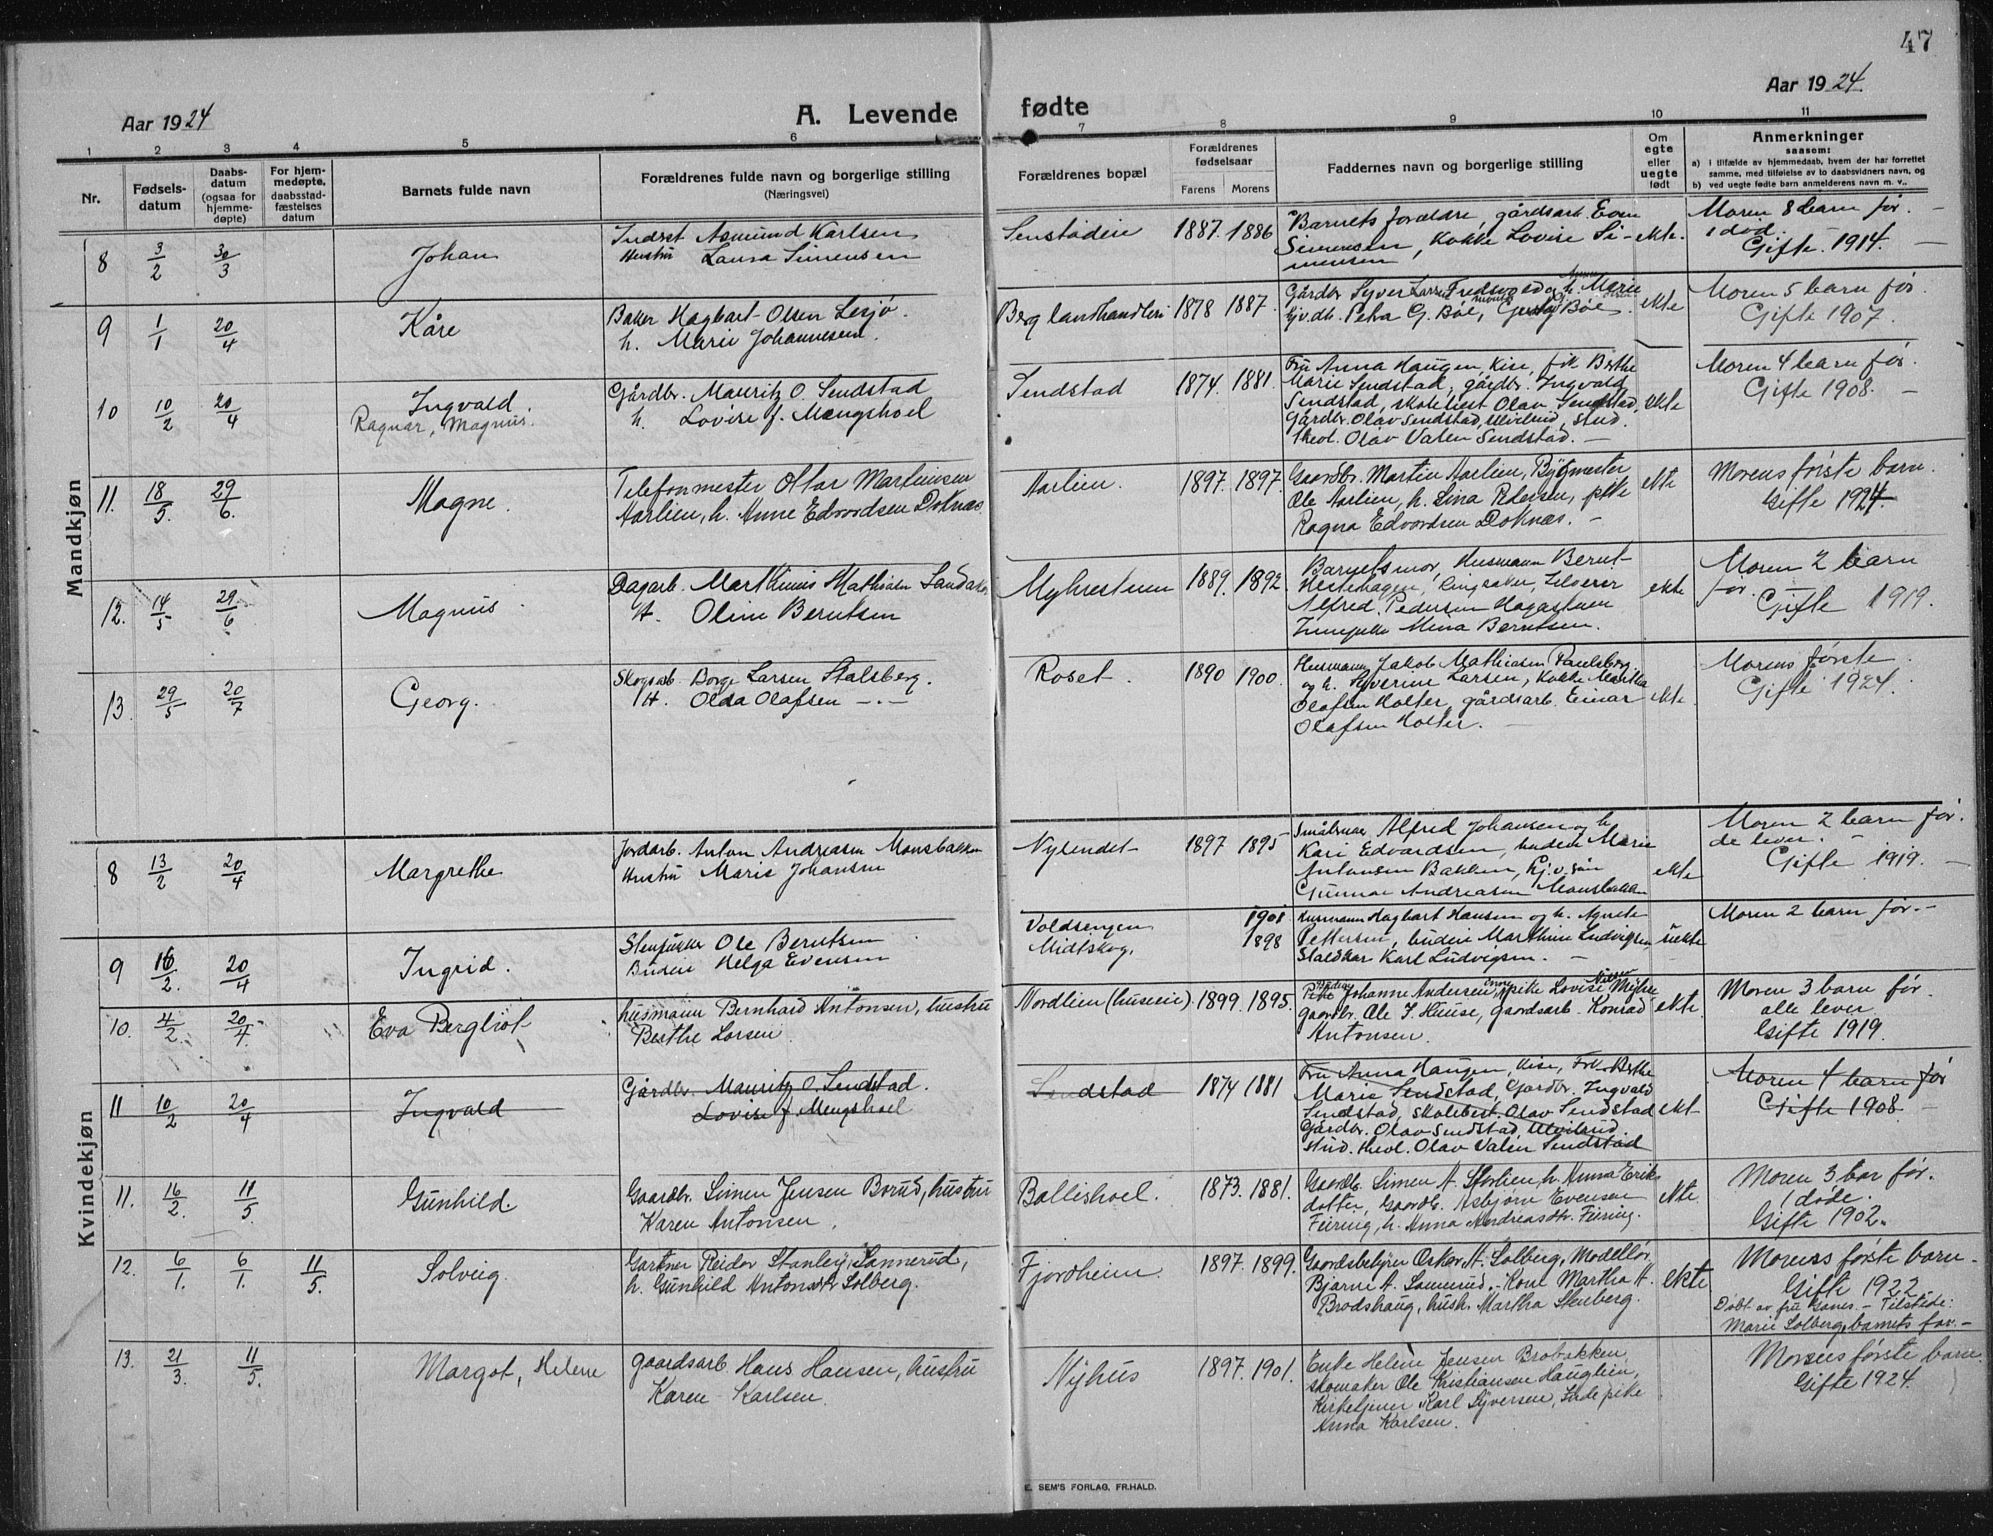 47
Aar 1924
A. Levende fødte
Aar 1924.
1 2 3 4 5 6 7 8 9 10 11
Nr.
Fødsels-
datum
Daabs-
datum
(ogsaa for
hjemme-
døpte)
For hjem-
medøpte,
daabsstad-
fæstelses
datum
Barnets fulde navn
Forældrenes fulde navn og borgerlige stilling
(Næringsvei)
Forældrenes bopæl
Forældrenes
fødselsaar
Farens Morens
Faddernes navn og borgerlige stilling
Om
egte
eller
uegte
født
Anmerkninger
saasom:
a) i tilfælde av hjemmedaab, hvem der har forrettet
samme, med tilføielse av to daabsvidners navn, og
b) ved uegte fødte barn anmelderens navn m. v..
Mandkjøn
8 3/2 30/3 Johan
Indsst Asmund Karlsen
Hustru Laura Simensen
1887. 1886
Barnets forældre, gårdsarb. Even
Simensen, Kokke Lovise Si-
mensen
ekte.
Moren 8 barn før.
1 død.
Gifte 1914.
9 1/1 20/4 Kåre
Baker Hagbart Olsen Lesjø.
h. Marie Johannesen.
Berg lanthandleri 1878 1887.
Gårdbr. Syver Larsen h. Marie
Petra G. Bøe, Bøe.
ekte
Moren 5 barn før.
Gifte 1907.
10 10/2 20/4 Ingvald
Ragnar, Magnus.
Gårdbr. Mauritz O. Sendstad
h. Lovise f. Mengshoel
Sendstad 1874. 1881.
Fru Anna Haugen, Kise, frk Berthe
Marie Sendstad, gårdbr. Ingvald
Sendstad, skolebest Olav Sendstad,
Gårdbr. Olav Sendstad, Ulvilrud, stud.
theol. Olav Valen Sendstad. —
ekte
Moren 4 barn før.
Gifte 1908. —
11. 18/5. 29/6. Magne.
Telefonmester Ottar Martinsen
Aarlien, h. Anne Edvardsen Doknæs.
Aarlien. 1897. 1897.
Gaardbr. Martin Aarlien, Bygmester
Ole Aarlien, h. Lina Pedersen, pike
Ragna Edvardsen Doknæs. —
ekte
Morens første barn.
Gifte 1924.
12. 14/5 29/6 Magnus.
Dagarb. Marthinius Mathisen
H. Oline Berntsen
Myhrestuen 1889. 1892
Barnets mor, Husmann Bernt
Hestehagen,
Alfred Pedersen Hagastuen
Mina Berntsen.
ekte
Moren 2 barn
før. — Gifte 1919.
13. 29/5 20/7 Georg.
Skogsarb Borge Larsen Stalsberg.
H. Olda Olafsen —.—
Roset. 1890 1900.
Husmann Jakob Mathiasen Paulsberg
og h. Syverine Larsen, Kokke
Olafsen Holter, gårdsarb. Einar
Olafsen Holter. —
ekte.
Morens første.
Gifte 1924.
Kvindekjøn
8 13/2 20/4 Margrethe
Jordarb. Anton Andreasen Monsbakken
Hustru Marie Johansen
Nylendet 1897 1895
Alfred Johansen og h.
Kari Edvardsen, budeie Marie
Antonsen Bakken, Gj.v. søn
Gunnar Andreasen Monsbakken
ekte
Moren 2 barn før.
de lever. —
Gifte 1919. —
9 16/2. 20/4 Ingrid.
Ole Berntsen
Budeie Helga Evensen
Voldsengen
Midtskog,
1901
1898
Husmann Hagbart Hansen og h. Agnete
Pettersen, budeie Marthine Ludvigsen
Staldkar Karl Ludvigsen. —
uekte
Moren 2 barn før.—
10. 4/2. 20/4. Eva Bergliot
husmann Bernhard Antonsen, hustru
Berthe Larsen.
Nordlien (huseie). 1899. 1895.
Pike Johanne Andersen, pike Lovise Nilsen Myhre
gaardbr. Ole J. Huuse, gaardsarb. Konrad
Antonsen.
ekte.
Moren 3 barn før.
alle lever.
Gifte 1919.
11 10/2 20/4 Ingvald
Gårdbr. Mauritz O. Sendstad.
Lovise f. Mengshoel
Sendstad 1874 1881
Fru Anna Haugen, Kise, Frk. Berthe
Marie Sendstad, Gårdbr. Ingvald
Sendstad, skolebest. Olav Sendstad
Gårdbr. Olav Sendstad Ulvilrud.
stud. theol. Olav Valen Sendstad
ekt
Moren 4 barn før
Gifte 1908. —
11. 16/2. 11/5 Gunhild.
Gaardbr. Simen Jensen Borud, hustru
Karen Antonsen.
Ballishoel. 1873. 1881.
Gaardb. Simen A. Storlien, h. Anna Eriks
datter, Gaardb. Asbjørn Evensen
Feiring, h. Anna Andreasdtr. Feiring.
ekte.
Moren 3 bar før.
1 døde.
Gifte 1902.
12. 6/1. 6/1. 11/5. Solveig.
Gartner Reidar Stanley Sannerud,
h. Gunhild Antonsdtr Solberg.
Fjordheim. 1897. 1899.
Gaardsbestyrer Oskar A. Solberg, Modellør
Bjarne A. Sannerud, - Kone Martha A.
Brodshaug, hush. Martha Stenberg.
ekte
Morens første barn.
Gifte 1922
Døbt av fru Ganes. — Tilstede:
Marie Solberg, barnets far. —
13. 21/3. 11/5. Margot, Helene
gaardsarb Hans Hansen, hustru
Karen Karlsen.
Nyhus 1897. 1901.
Enke Helene Jensen Brobakken,
skomaker Ole Kristiansen Hauglien,
Kirketjener Karl Syversen, pike
Anna Karlsen.
Morens første barn.
Gifte 1924.
E. SEM'S FORLAG, FR.HALD.